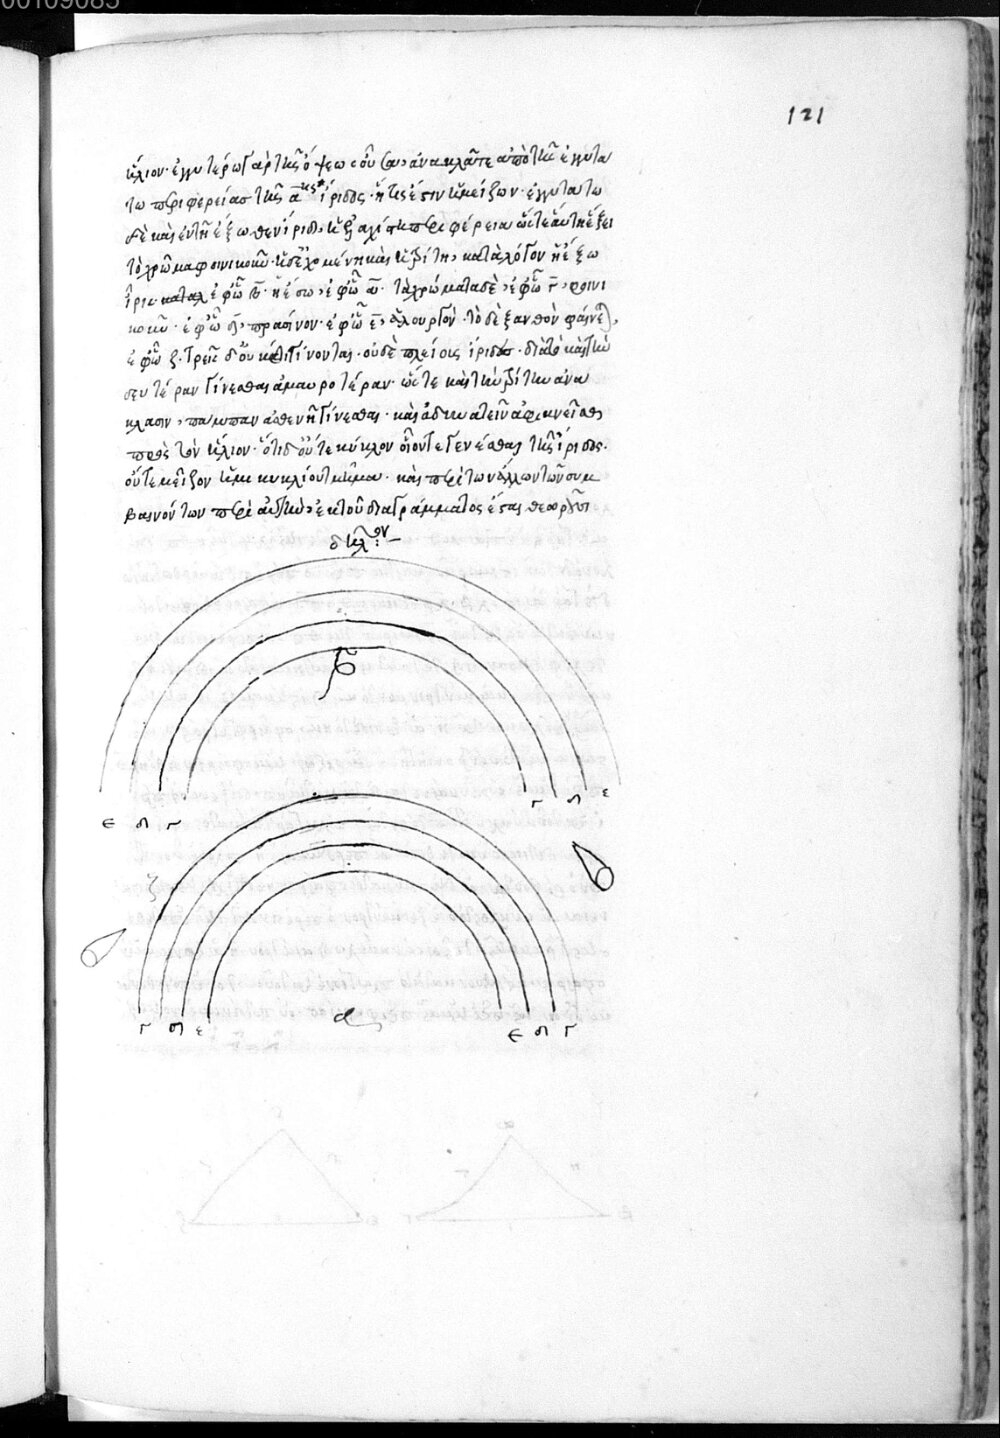 00109085
121
ἥλιον· ἐγγυτέρω γὰρ τῆς ὄψεως οὖσα, ἀνακλᾶται ἀπὸ τῆς ἐγγυτά
τω περιφερείας τῆς α της ἴριδος· ἥτις ἐστιν ἡ μείζων· ἐγγυτάτω
δὲ καὶ ἐν τῆ ἔξωθεν ἴριδι, ἡ ἐλαχίστη περιφέρεια ὥστε αὐτὴ ἕξει
τὸ χρῶμα φοινικοῦν· ἡ δ' ἐχομένη καὶ ἡ τρίτη, κατὰ λόγον ἡ ἔξω
ἴρις ἐφ' ὧ β· ἡ ἔσω, ἐφ' ὧ α· τὰ χρώματα δὲ, ἐφ' ὧ γ, φοινι
κοῦν· ἐφ' ὧ δ, πράσινον· ἐφ' ὧ ε, ἁλουργόν· τὸ δὲ ξανθὸν φαίνεται,
ἐφ' ὧ ζ· τρεῖς δ' οὐκέτι γίνονται· οὐδὲ πλείους ἴριδες· διὰ τὸ καὶ τὴν
δευτέραν γίνεσθαι ἀμαυροτέραν· ὥστε καὶ τὴν τρίτην ἀνά
κλασιν, πάμπαν ἀσθενῆ γίνεσθαι· καὶ ἀδυνατεῖν ἀφικνεῖσθαι
πρὸς τὸν ἥλιον· ὅτι δ' οὔτε κύκλον οἷόν τε γενέσθαι τῆς ἴριδος·
οὔτε μεῖζον ἡμικυκλίου τμῆμα· καὶ περὶ τῶν ἄλλων τῶν συμ
βαινόντων περὶ αὐτὴν, ἐκ τοῦ διαγράμματος ἔσται θεωροῦσι
δῆλον:–
β
ε δ γ
γ δ ε
ζ
γ δ ε
α
ε δ γ